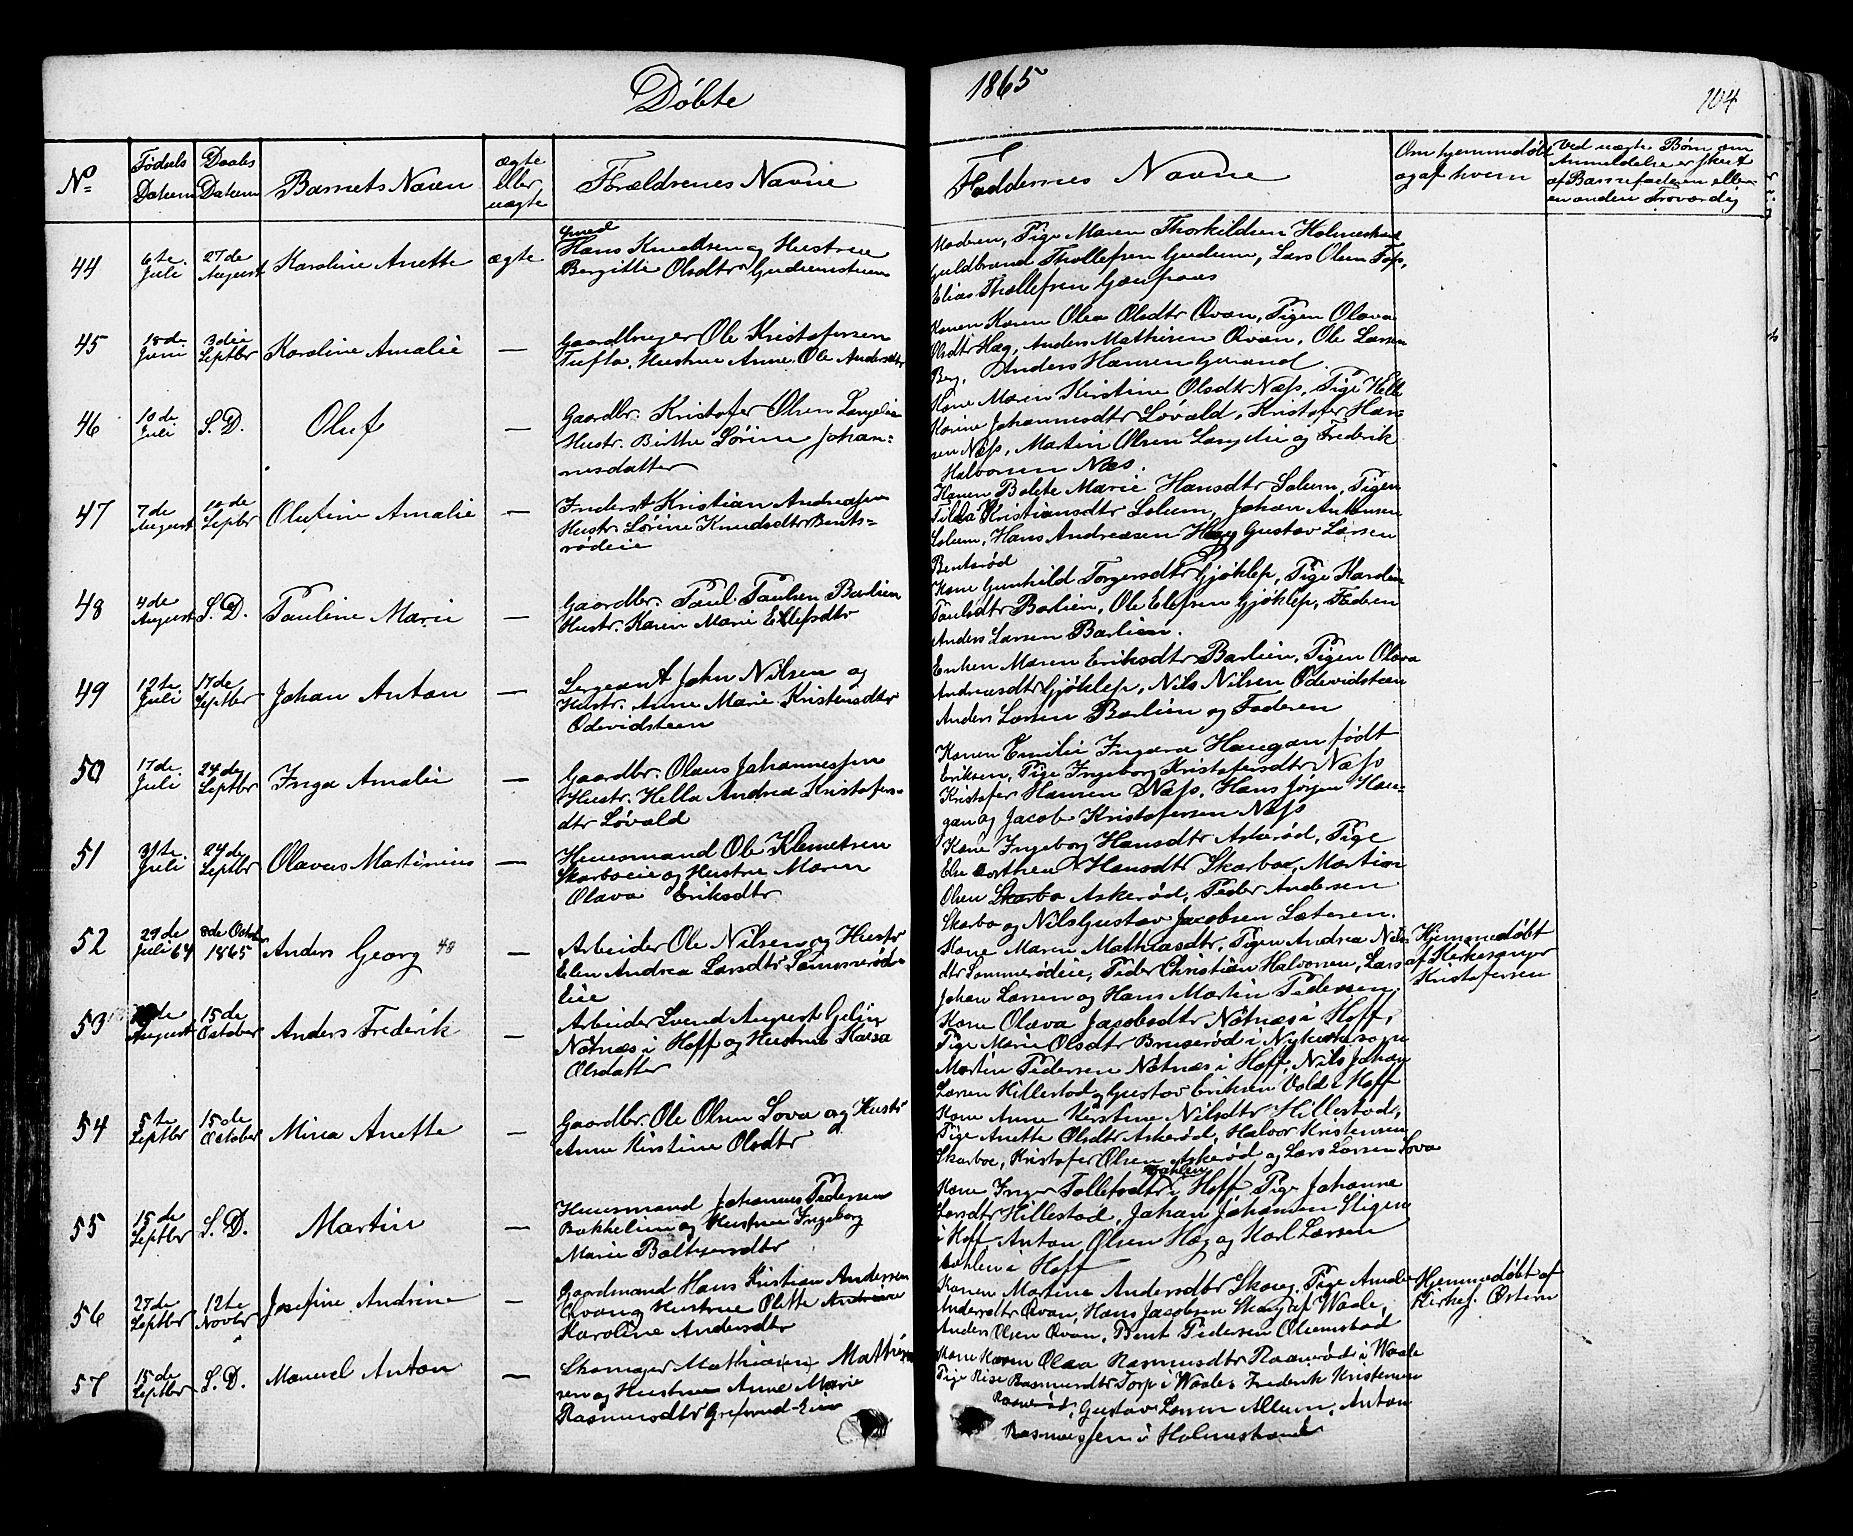 Døbte
1865
104
No
Fødsels Datum
Daabs Datum
Barnets Navn
ægte eller uægte
Forældrenes Navne
Faddernes Navne
Om hjemmedøbt og af hvem
Ved uægte Børn om Anmeldelse er skeet af Barnefaderen eller en anden Troværdig
44
6te Juli
27de August
Karoline Anette
ægte
Hans Knudsen og Hustrue
Bergitte Olsdtr
Maren Thorkildsen Holmestrand
Guldbrand Thollefsen Gudum, Lars Olsen
Elias Thollefsen
45
18de Juni
3die Septbr
Karoline Amalie
—
Gaardbruger Ole Kristofersen
Tufta, Hustrue Anne Ole Andersdtr
Konen Karen Olea Olsdtr Qvan, Pigen Olava
Olsdtr Hæg, Anders Mathisen Qvan, Ole Larsen
Berg, Anders Hansen
46
10de Juli
S.D.
Oluf
—
Gaardbr. Kristofer Olsen Langelie
Hustr. Birthe Sørine Johan-
nesdatter
Kone Maren Kirstine Olsdtr Næss, Pige Helle
Karine Johannesdtr Løvald, Kristofer Han-
sen Næss, Martin Olsen Langelie og Frederik
Halvorsen Næs.
47
7de August
10de Septbr
Olufine Amalie
—
Inderst Kristian Andreassen
Hustr. Lørine Knudsdtr Bents-
rødeie
Konen Bolete Marie Hansdtr Solum, Pigen
Tilda Kristiansdtr Solum, Johan Antonsen
Solum, Hans Andreasen Hæg Gustav Larsen
Bentsrød
48
4de August
S.D.
Pauline Marie
—
Gaardbr. Paul Paulsen Barlien
Hustr. Karen Marie Ellefsdtr
Kone Gunhild Torgersdtr Gjøklep, Pige Karoline
Paulsdtr Barlien, Ole Elefsen Gjøklep, Faderen
Anders Larsen Barlien.
49
12te Juli
17de Septbr
Johan Anton
—
Sergeant John Nilsen og
Hustr. Anne Marie Kristensdtr
Odevidsteen
Enken Maren Eriksdtr Barlien, Pigen Olava
Andreasdtr Gjøklep, Nils Nilsen Odevidsteen
Anders Larsen Barlien og Faderen
50
17de Juli
24de Septbr
Inga Amalie
—
Gaardbr. Olaus Johannessen
Hustr. Hella Andrea Kristofers-
dtr Løvald
Konen Emilie Ingara Haugan født
Eriksen, Pige Ingeborg Kristofersdtr Næss
Kristofer Hansen Næss, Hans Jørgen Hau-
gan og Jacob Kristofersen Næss
51
Juli
24de Septbr
Olavus Martinius
—
Huusmand Ole Klemetsen
Skarboeie og Hustrue Maren
Olava Eriksdtr
Kone Ingeborg Hansdtr Askerød, Pige
Dorthea Hansdtr Skarboe, Martin
Olsen Skarbo Askerød, Peder Andersen
Skarbo og Nils Gustav Jacobsen Sæteren.
52
29de Juli 64
8de October 1865
Anders Georg
—
Arbeider Ole Nilsen og Hustr
Elen Andrea Larsdtr Sommerød-
eie
Kone Maren Mathiasdtr, Pigen Andrea Nils-
dtr Sommerødeie, Peder Christian Halvorsen, Lars
Johan Larsen og Hans Martin Pedersen
Hjemmedøbt
af Kirkesanger
Kristofersen
53
August
15de October
Anders Frederik
—
Arbeider Svend August Gelin
Nøtnæs i Hoff og Hustrue Kaisa
Olsdatter
Kone Olava Jacobsdtr Nøtnæs i Hoff,
Pige Marie Olsdtr Bruserød i Nykirke sogn
Martin Pedersen Nøtnæs i Hoff, Nils Johan
Larsen Hillestad og Gustav Eriksen Vold i Hoff
54
5te Septbr
15de October
Mina Anette
—
Gaardbr. Ole Olsen Sova og Hustr
Anne Kirstine Olsdtr
Kone Anne Kirstine Nilsdtr Hillestad,
Pige Anette Olsdtr Askerød, Halvor Kristensen
Skarboe, Kristofer Olsen Askerød og Lars Larsen Sova
55
15de Septbr
S.D.
Martin
—
Huusmand Johannes Pedersen
Bakkelien og Hustrue Ingeborg
Marie Baltsersdtr
Kone Inger Tollefsdtr Dahlen i Hoff Pige Johanne
Larsdtr Hillestad, Johan Johansen Stigen
i Hoff Anton Olsen Hæg og Karl Larsen
Dahlen i Hoff
56
27de Septbr
12te Novbr
Josefine Andrine
—
Gaardmand Hans Kristian Andersen
Qvan og Hustrue Olette Andrine
Karoline Andersdtr
Konen Martine Andersdtr Skoug, Pige Amalie
Andersdtr Qvan, Hans Jacobsen Skoug af Waale,
Anders Olsen Qvan, Bent Pedersen
Hjemmedøbt af
Kirkes. Østern
57
15de Septbr
S.D.
Manuel Anton
—
Skomager Mathias Mathi-
sen og Hustrue Anne Marie
Rasmusdtr
Kone Karen Olaa Rasmusdtr Raanerød i Waale
Pige Rise Rasmusdtr Torp i Waale, Frederik Kristensen
Raanerød, Gustav Larsen Allum, Anton
Rasmussen i Holmestrand